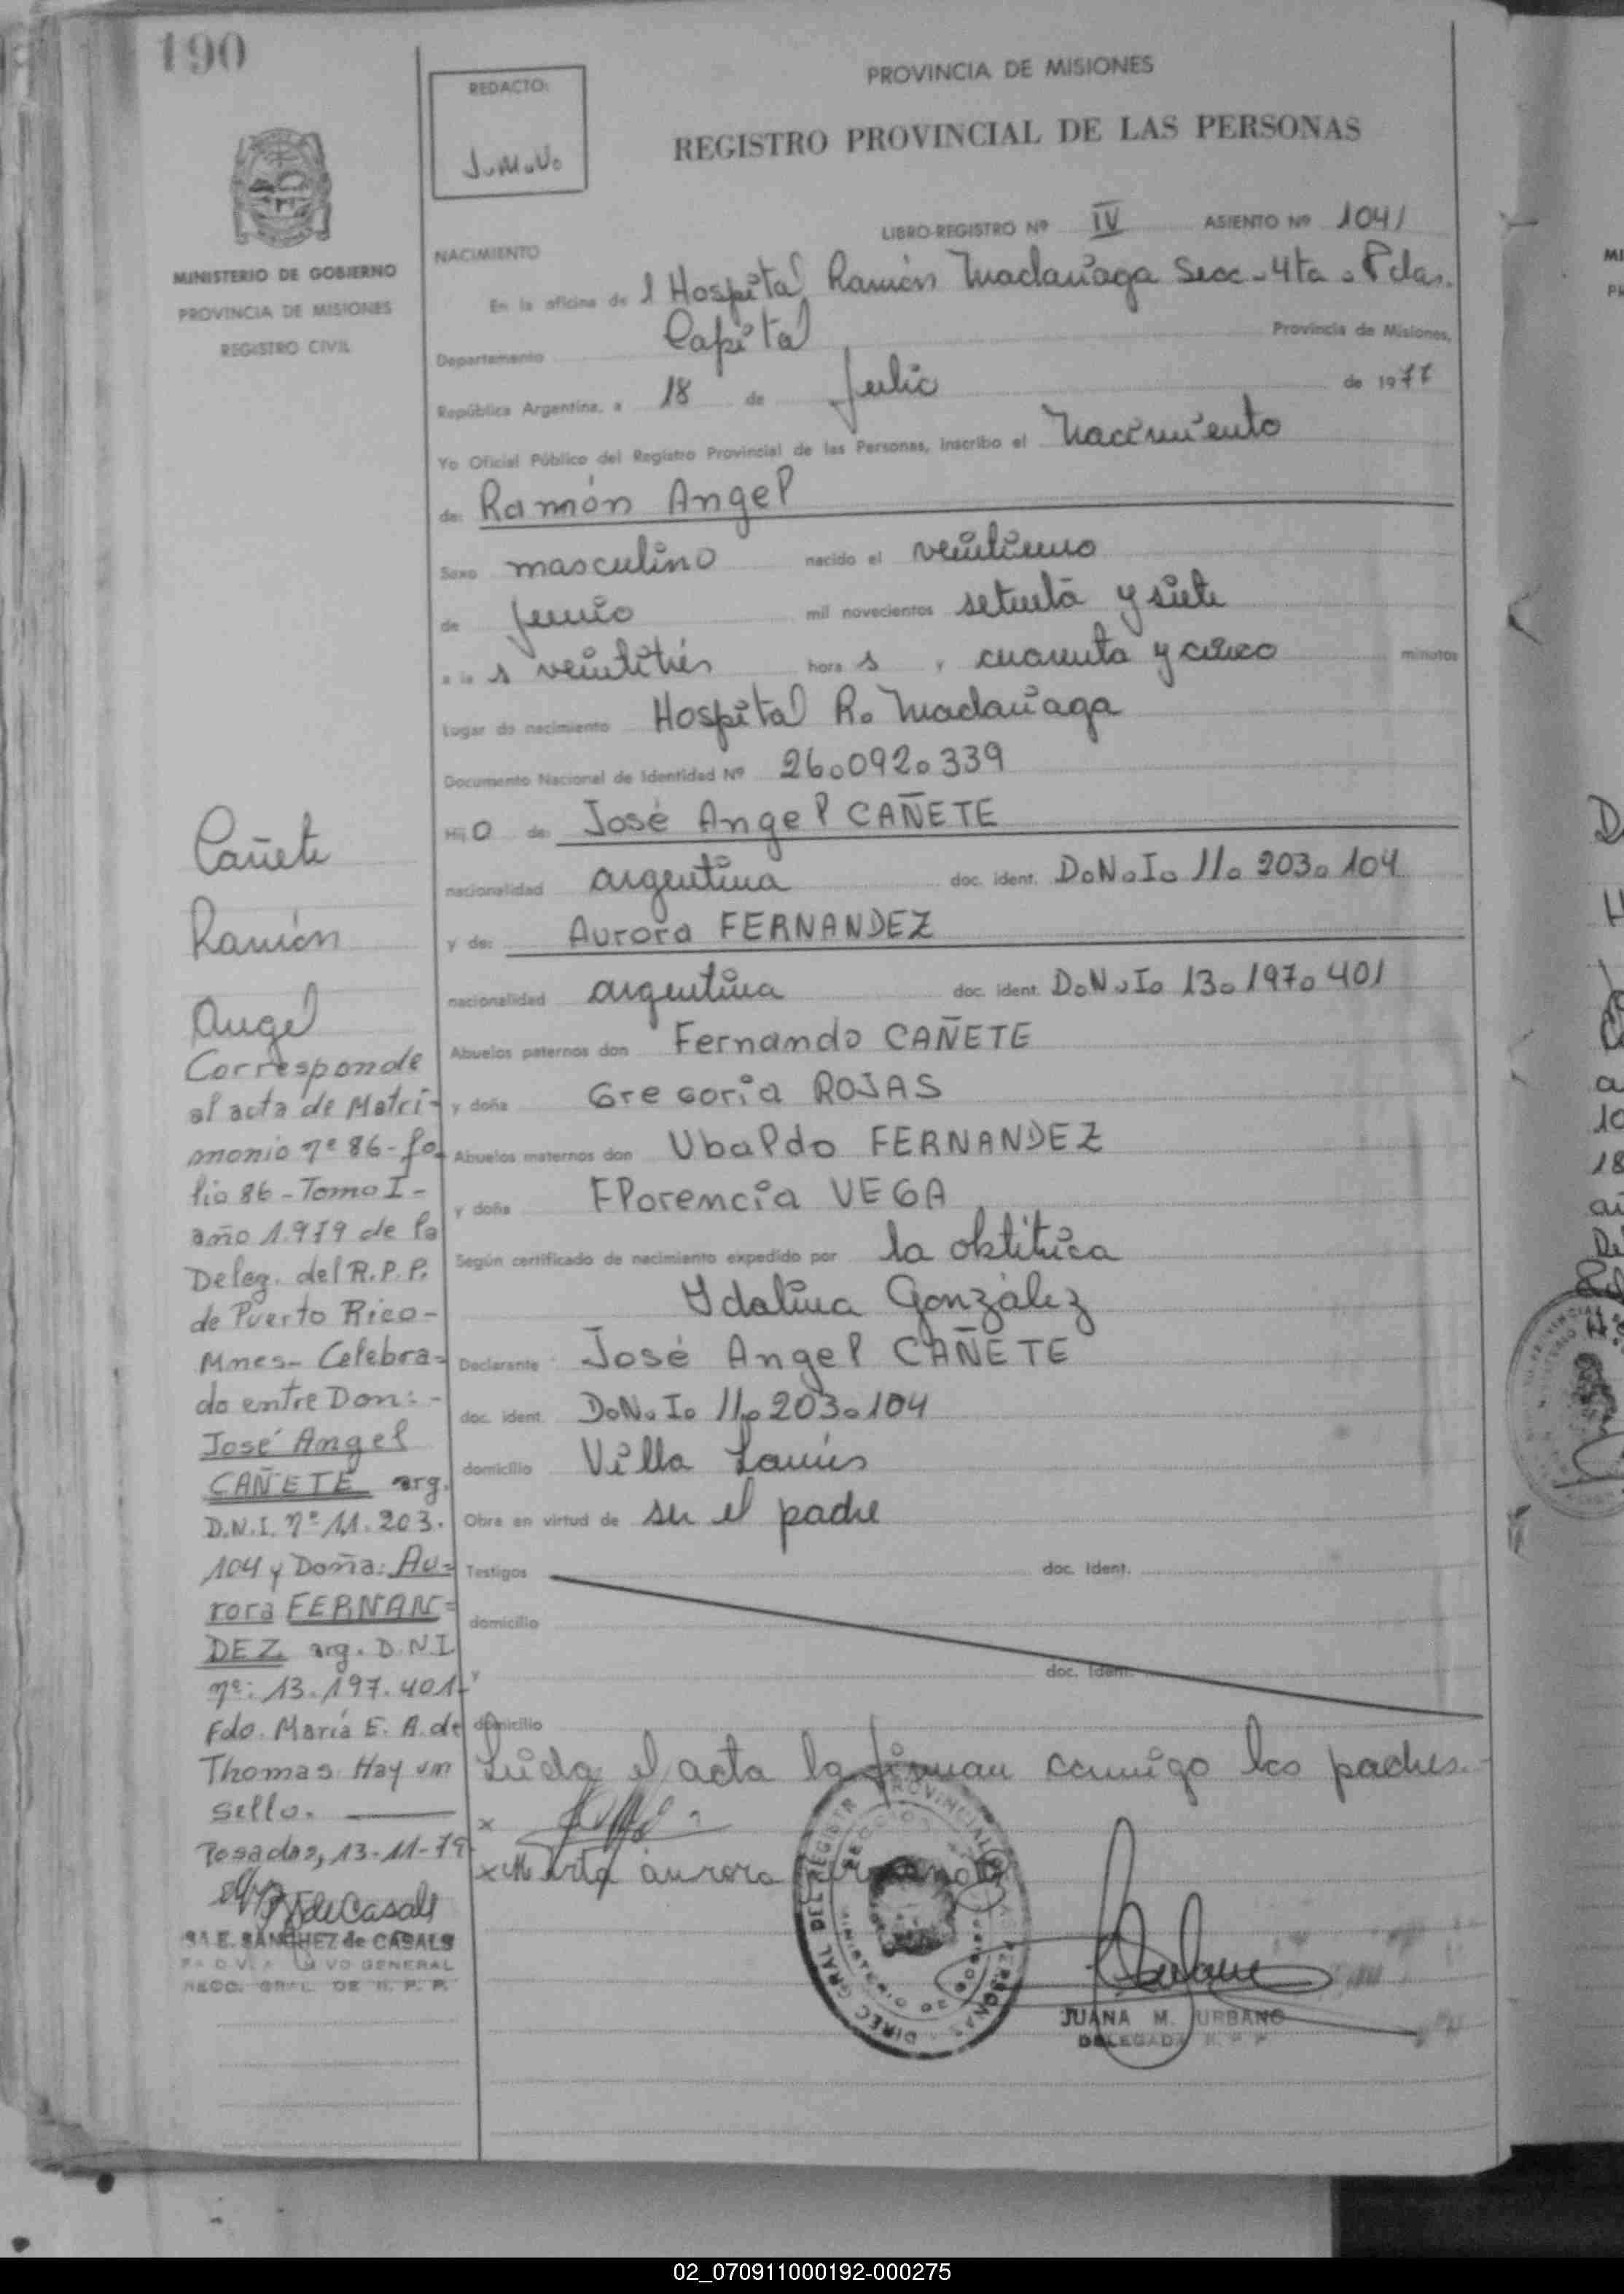 190
REDACTO:
J.M.U.
PROVINCIA DE MISIONES
REGISTRO PROVINCIAL DE LAS PERSONAS
LIBRO-REGISTRO Nº IV ASIENTO Nº 1041
MINISTERIO DE GOBIERNO
PROVINCIA DE MISIONES
REGISTRO CIVIL
NACIMIENTO
En la oficina de l Hospital Ramón Madariaga Secc. 4ta. Pdas.
Departamento Capital Provincia de Misiones,
República Argentina, a 18 de Julio de 1977
Yo Oficial Público del Registro Provincial de las Personas, inscribo el Nacimiento
de: Ramón Angel
Sexo masculino nacido el veintiuno
de junio mil novecientos setenta y siete
a la s veintitrés hora s y cuarenta y cinco minutos
Lugar de nacimiento Hospital R. Madariaga
Documento Nacional de Identidad Nº 26.092.339
Hij O de: José Angel CAÑETE
nacionalidad argentina doc. ident. D.N.I. 11.203.104
y de: Aurora FERNANDEZ
nacionalidad argentina doc. ident. D.N.I. 13.197.401
Abuelos paternos don Fernando CAÑETE
y doña Gregoria ROJAS
Abuelos maternos don Ubaldo FERNANDEZ
y doña Florencia VEGA
Según certificado de nacimiento expedido por la obtétrica
Idalina González
Declarante José Angel CAÑETE
doc. ident. D.N.I. 11.203.104
domicilio Villa Lanús
Obra en virtud de ser el padre
Testigos doc. ident.
domicilio
y doc. ident.
domicilio
Leida el acta la firman conmigo los padres.
x
x Marta aurora
JUANA M. URBANO
DELEGADA R. P. P.
Cañete
Ramón
Angel
Corresponde
al acta de Matri-
monio nº 86-fo-
lio 86-Tomo I-
año 1.979 de la
Deleg. del R.P.P.
de Puerto Rico-
Mnes- Celebra-
do entre Don:-
José Angel
CAÑETE arg.
D.N.I. nº 11.203.
104 y Doña: Au-
rora FERNAN-
DEZ arg. D.N.I
nº: 13.197.401-
Fdo. María E. A. de
Thomas Hay un
sello.
Posadas, 13-11-79
SANCHEZ de CASALS
02_070911000192-000275